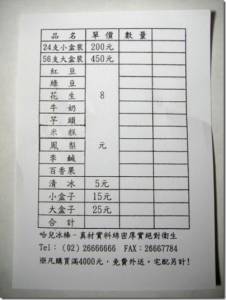 品 名 單價 數量
24支小盒裝 200元
56支大盒裝 450元
紅豆
綠豆
花生 8
牛奶
芋頭
米糕
鳳梨 元
李鹹
百香果
清冰 5元
小盒子 15元
大盒子 25元
合計
哈兒冰棒-真材實料綿密厚實絕對衛生
Tel: (02) 26666666 FAX:26667784
※凡購買滿4000元,免費外送。宅配另計!